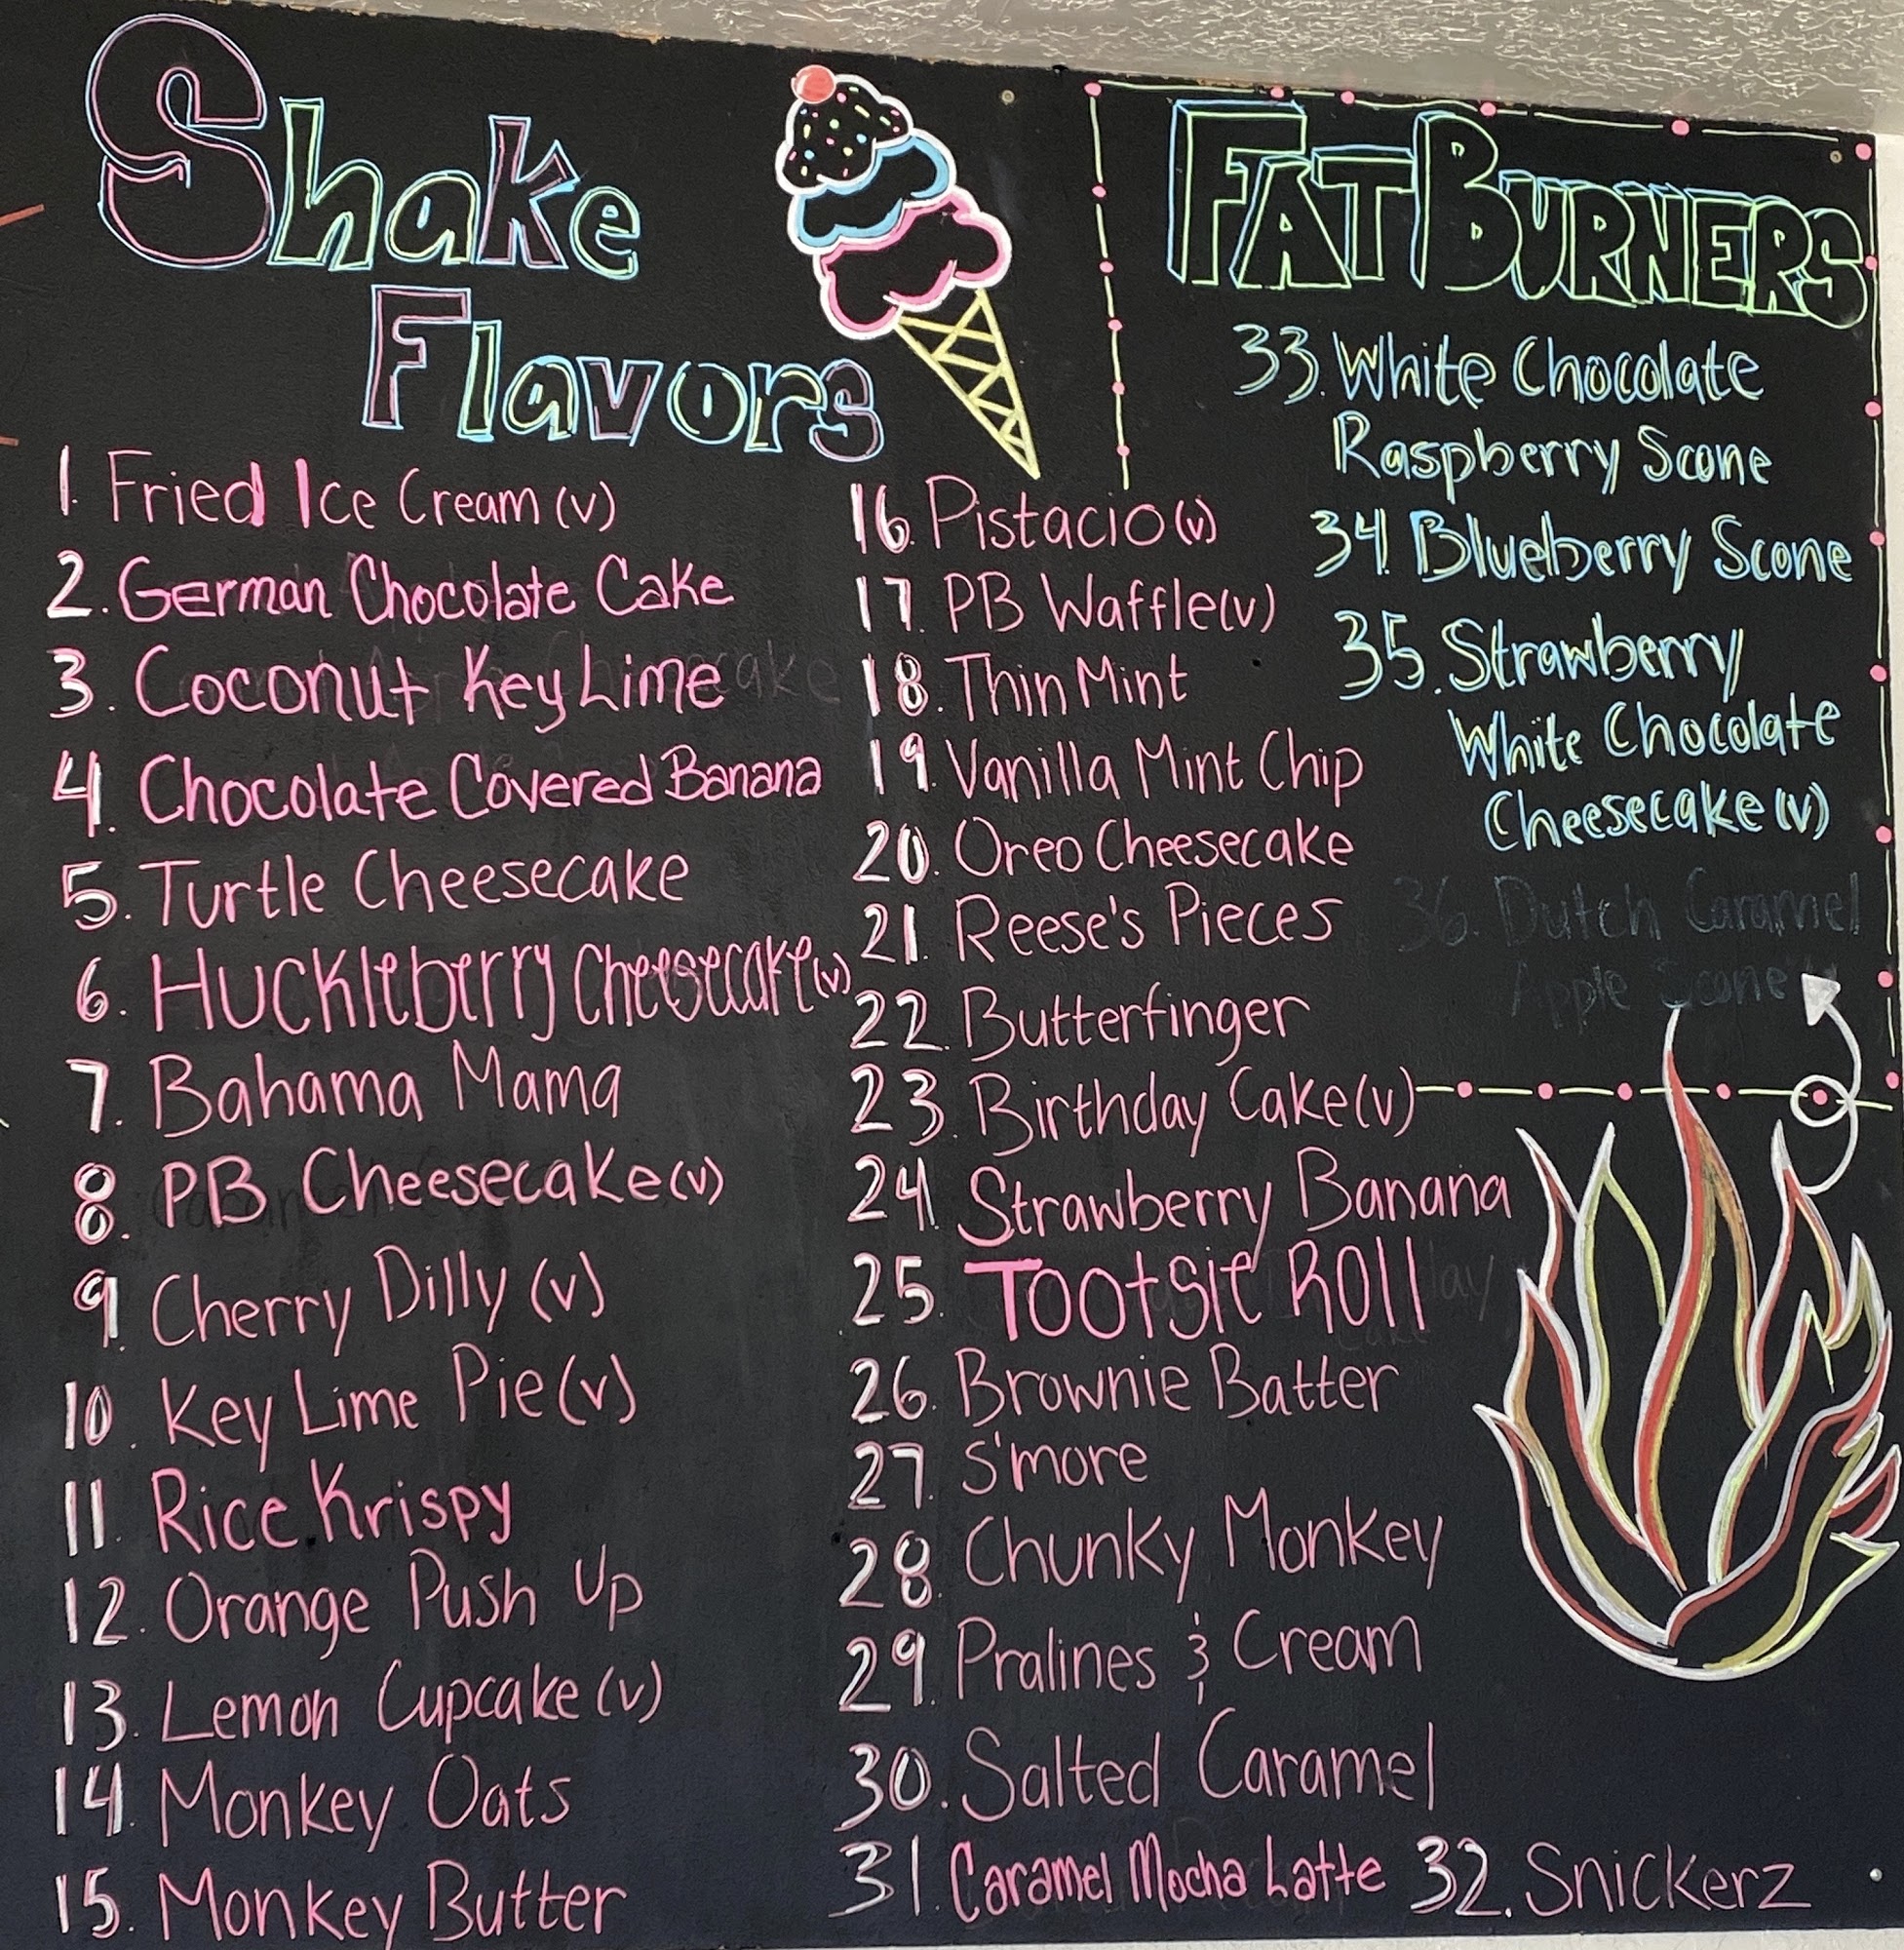 Shake
Flavors
1. Fried Ice Cream (v)
2. German Chocolate Cake
3. Coconut Key Lime
4. Chocolate Covered Banana
5. Turtle Cheesecake
6. Huckleberry Cheesecake (v)
7. Bahama Mama
8. PB Cheesecake (v)
9. Cherry Dilly (v)
10. Key Lime Pie (v)
11. Rice Krispy
12. Orange Push Up
13. Lemon Cupcake (v)
14. Monkey Oats
15. Monkey Butter
16. Pistacio (v)
17. PB Waffle (v)
18. Thin Mint
19. Vanilla Mint Chip
20. Oreo Cheesecake
21. Reese's Pieces
22. Butterfinger
23. Birthday Cake (v)
24. Strawberry Banana
25. Tootsie Roll
26. Brownie Batter
27. S'more
28. Chunky Monkey
29. Pralines & Cream
30. Salted Caramel
31. Caramel Mocha Latte
32. Snickerz
FAT BURNERS
33. White Chocolate
Raspberry Scone
34. Blueberry Scone
35. Strawberry
White Chocolate
Cheesecake (v)
36. Dutch Caramel
Apple Scone